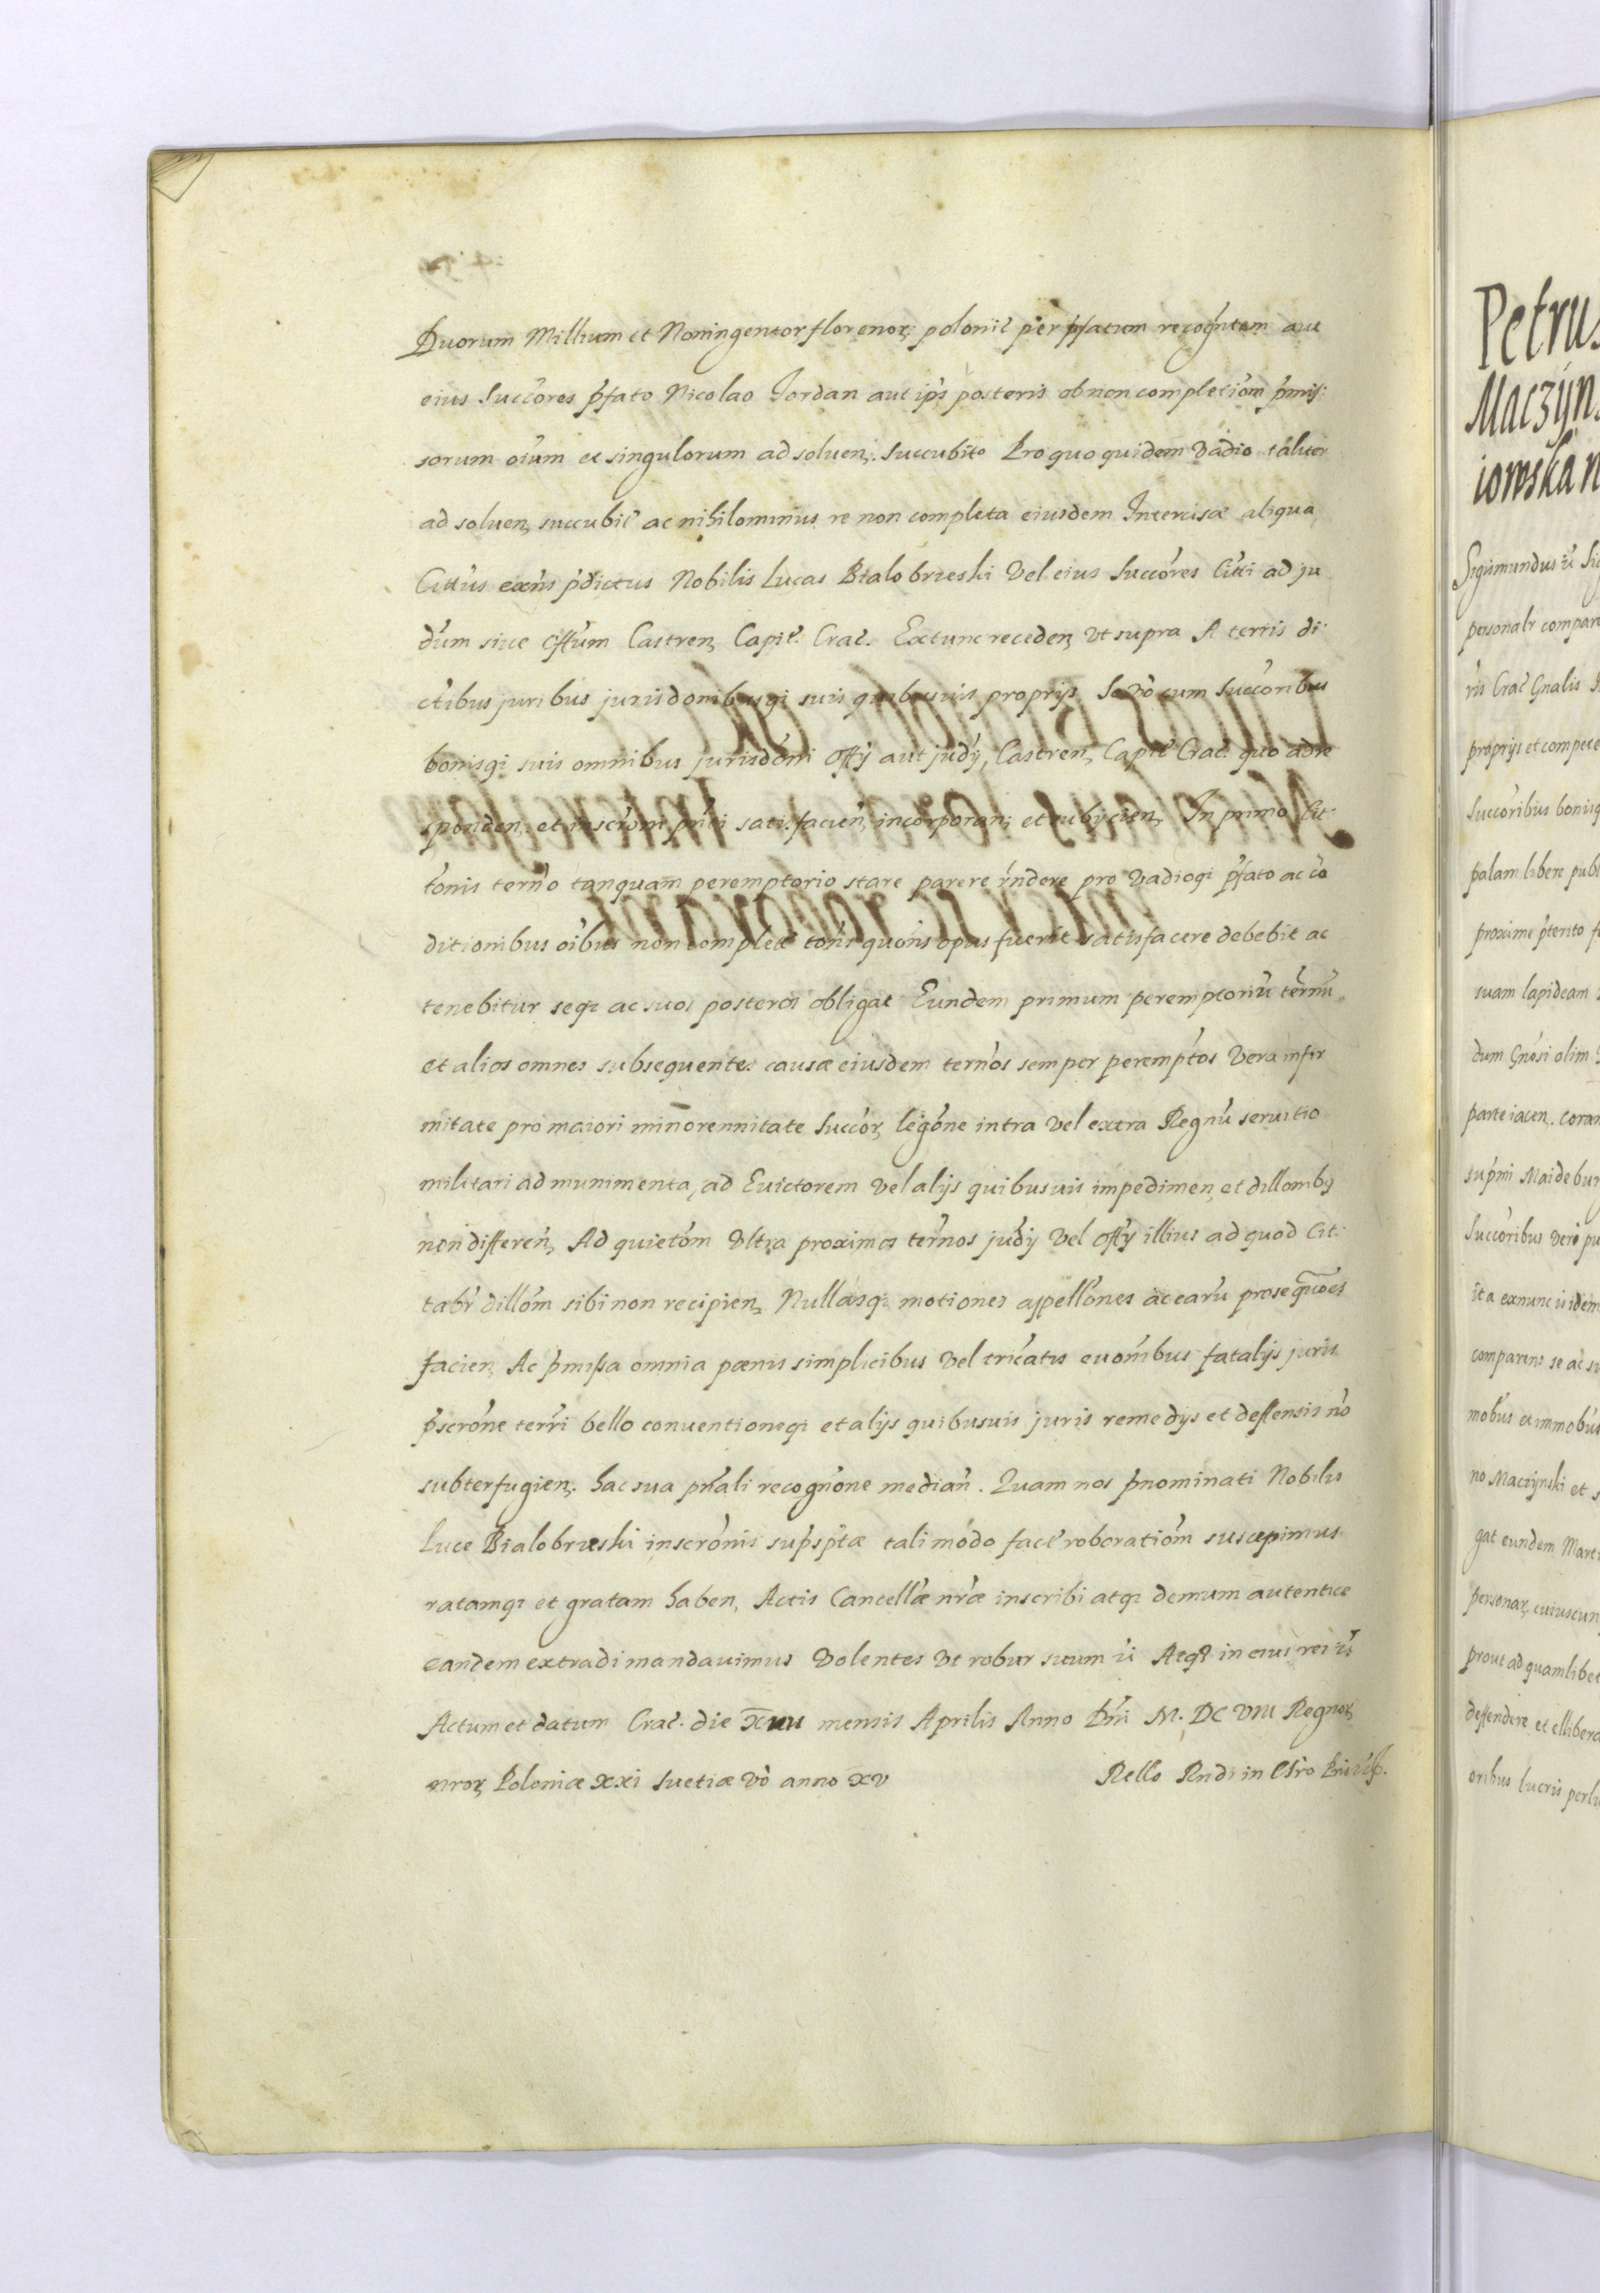 Duorum Millium et Noningentor florenor, polonic per pfatum recogntem aut
eius Succores pfato Nicolao Jordan aut ips posteris ob non completiom pmis:
sorum oium et singulorum ad soluen, succubito Pro quo quidem vadio taliter
ad soluen, succubit ac nihilominus re non completa eiusdem Intercisæ aliqua
Cittus exns pdictus Nobilis Lucas Bialobrzeski Vel eius Succores Citti ad ju
dum siue Offum Castren, Capit. Crac. Extunc receden, vt supra A terris di:
ctibus juribus jurisdonibusqi suis quibusuis proprijs Se vo cum Succoribus
bonisqi suis omnibus jurisdoni Offy aut judy, Castren, Capit Crac quo ad re
sponden, et inscriom pnti satisfacien, incorporan, et subijcien, In primo Cit
tonis terno tanquam peremptorio stare parere rndere pro vadioqi pfato ac co
ditionibus oibus non complet tots quons opus fuerit satisfacere debebit ac
tenebitur seqi ac suos posteros obligat Eundem primum peremptoriu ternu
et alios omnes subsequentes causæ eiusdem ternos semper peremptos Vera infir
mitate pro maiori minorennitate Succor, legone intra vel extra Regnu seruitio
militari ad munimenta, ad Euictorem vel alijs quibusuis impedimen, et dillombs
non differen, Ad quietom Vltra proximos ternos judy vel Offy illius ad quod Cit:
tabr dillom sibi non recipien, Nullasqi motiones appellones ac earu prosequoes
facien, Ac pmissa omnia pœnis simplicibus vel tricatis euombus fatalijs juris
pscrone terri bello conuentioneqi et alijs quibusuis juris remedys et deffensis no
subterfugien, hac sua pntali recognone median. Quam nos pnominati Nobilis
Luce Bialobrzeski inscronis supsptæ tali modo fact roboratiom suscepimus
ratamqi et gratam haben, Actis Cancellæ nræ inscribi atqi demum autentice
eandem extradi mandauimus Volentes vt robur suum
Actum et datum Crac. die mensis Aprilis Anno Dni M. DC VIII Regnor,
nror, Poloniæ XXI Suetiæ vo anno XV
Petrus
Maczyn
iowska n
Sigismundus
personalr compar
ris Crac Gnalis
proprijs et compete
Succoribus bonisq
palam libere publ
proxime pterito f
suam lapideam
dum Gnosi olim
parte iacen, coram
supmi Maidebur
Succoribus vero pu
ita exnunc iisdem
comparens se ac su
mobus et immobus
no Maczynski et s
gat eundem Mart
personar, cuiuscun
prout ad quamlibet
deffendere et ellibera
oribus lucris perlu